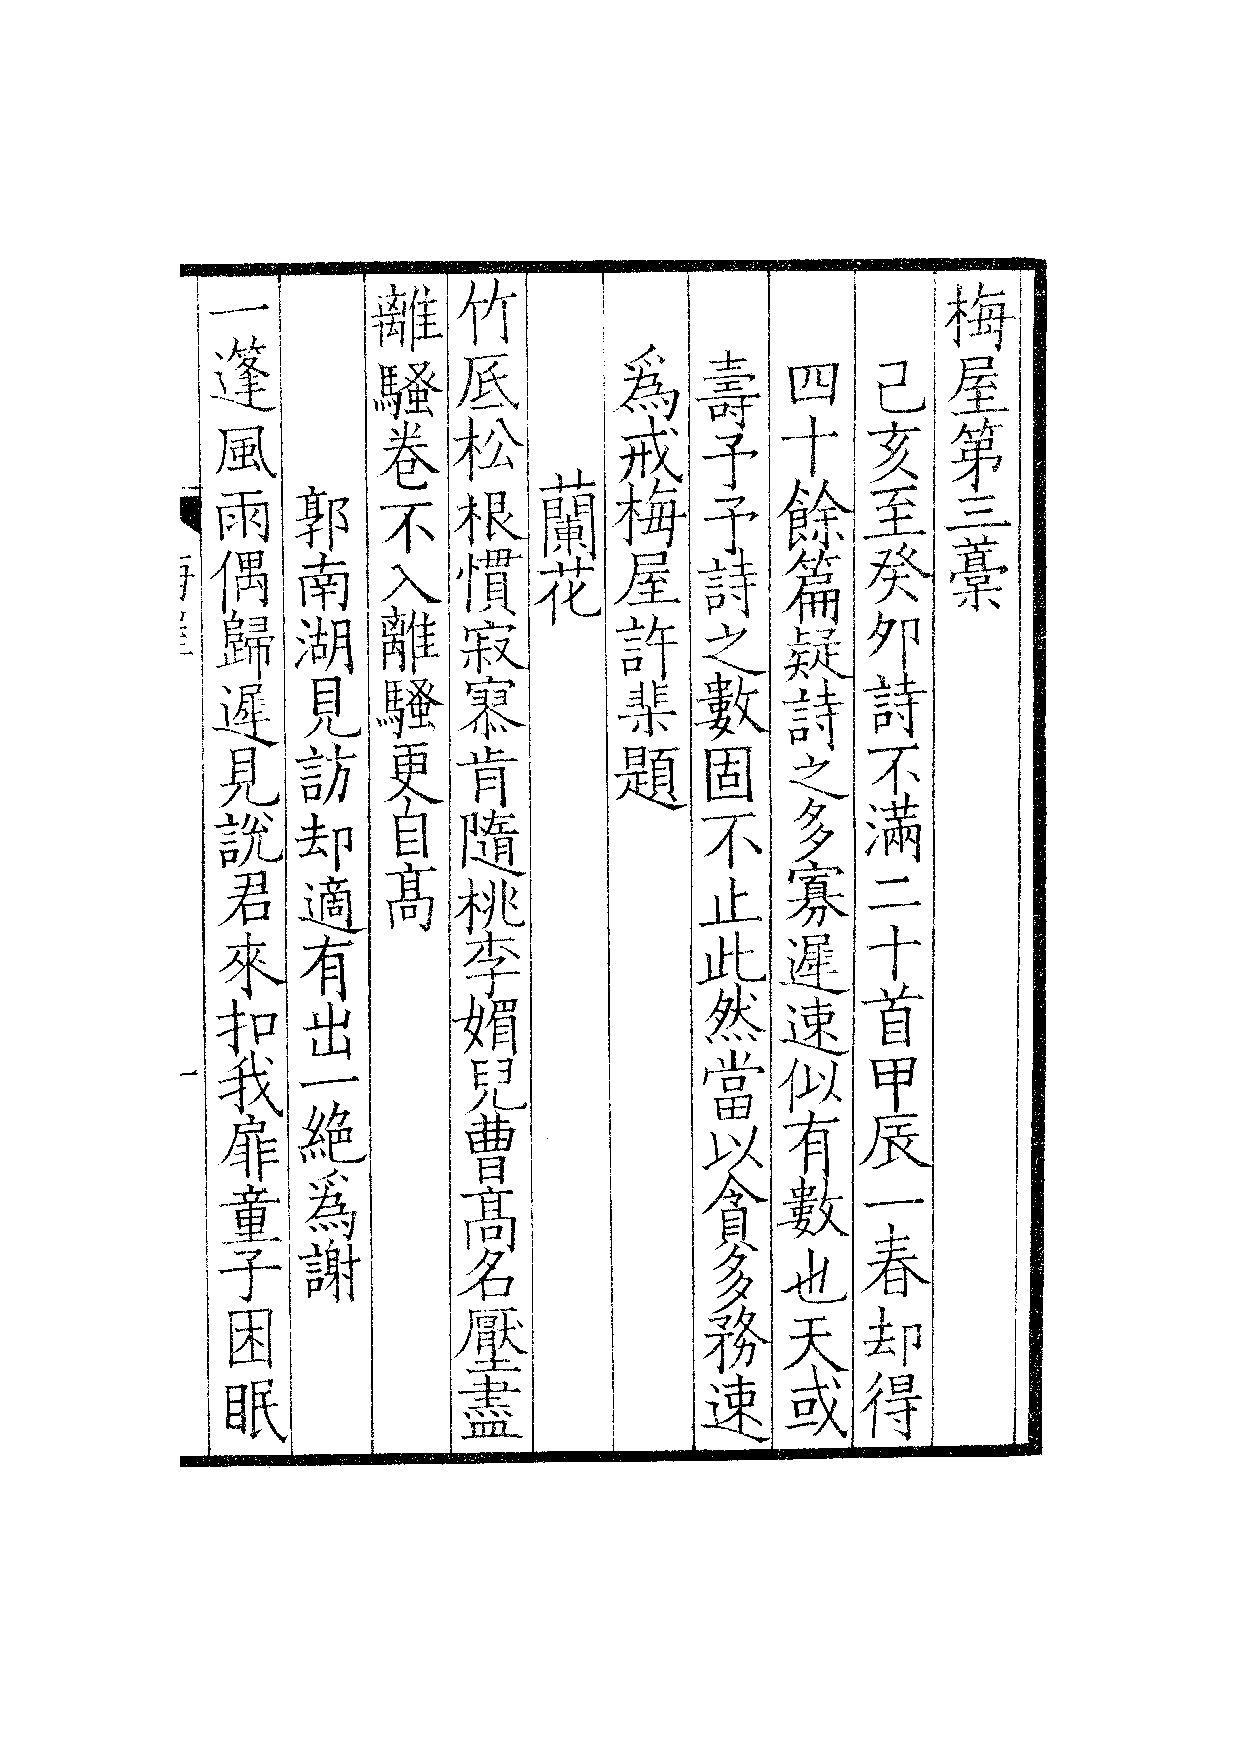 梅屋第三藁
己亥至癸夘詩不滿二十首甲辰一春却得
四十餘篇疑詩之多寡遲速似有數也天或
壽予予詩之數固不止此然當以貪多務速
爲戒梅屋許棐題
蘭花
竹底松根慣寂寞肯隨桃李媚兒曹髙名壓盡
離騷卷不入離騷更自髙
郭南湖見訪却適有出一絶爲謝
一篷風雨偶歸遲見說君來扣我扉童子困眠